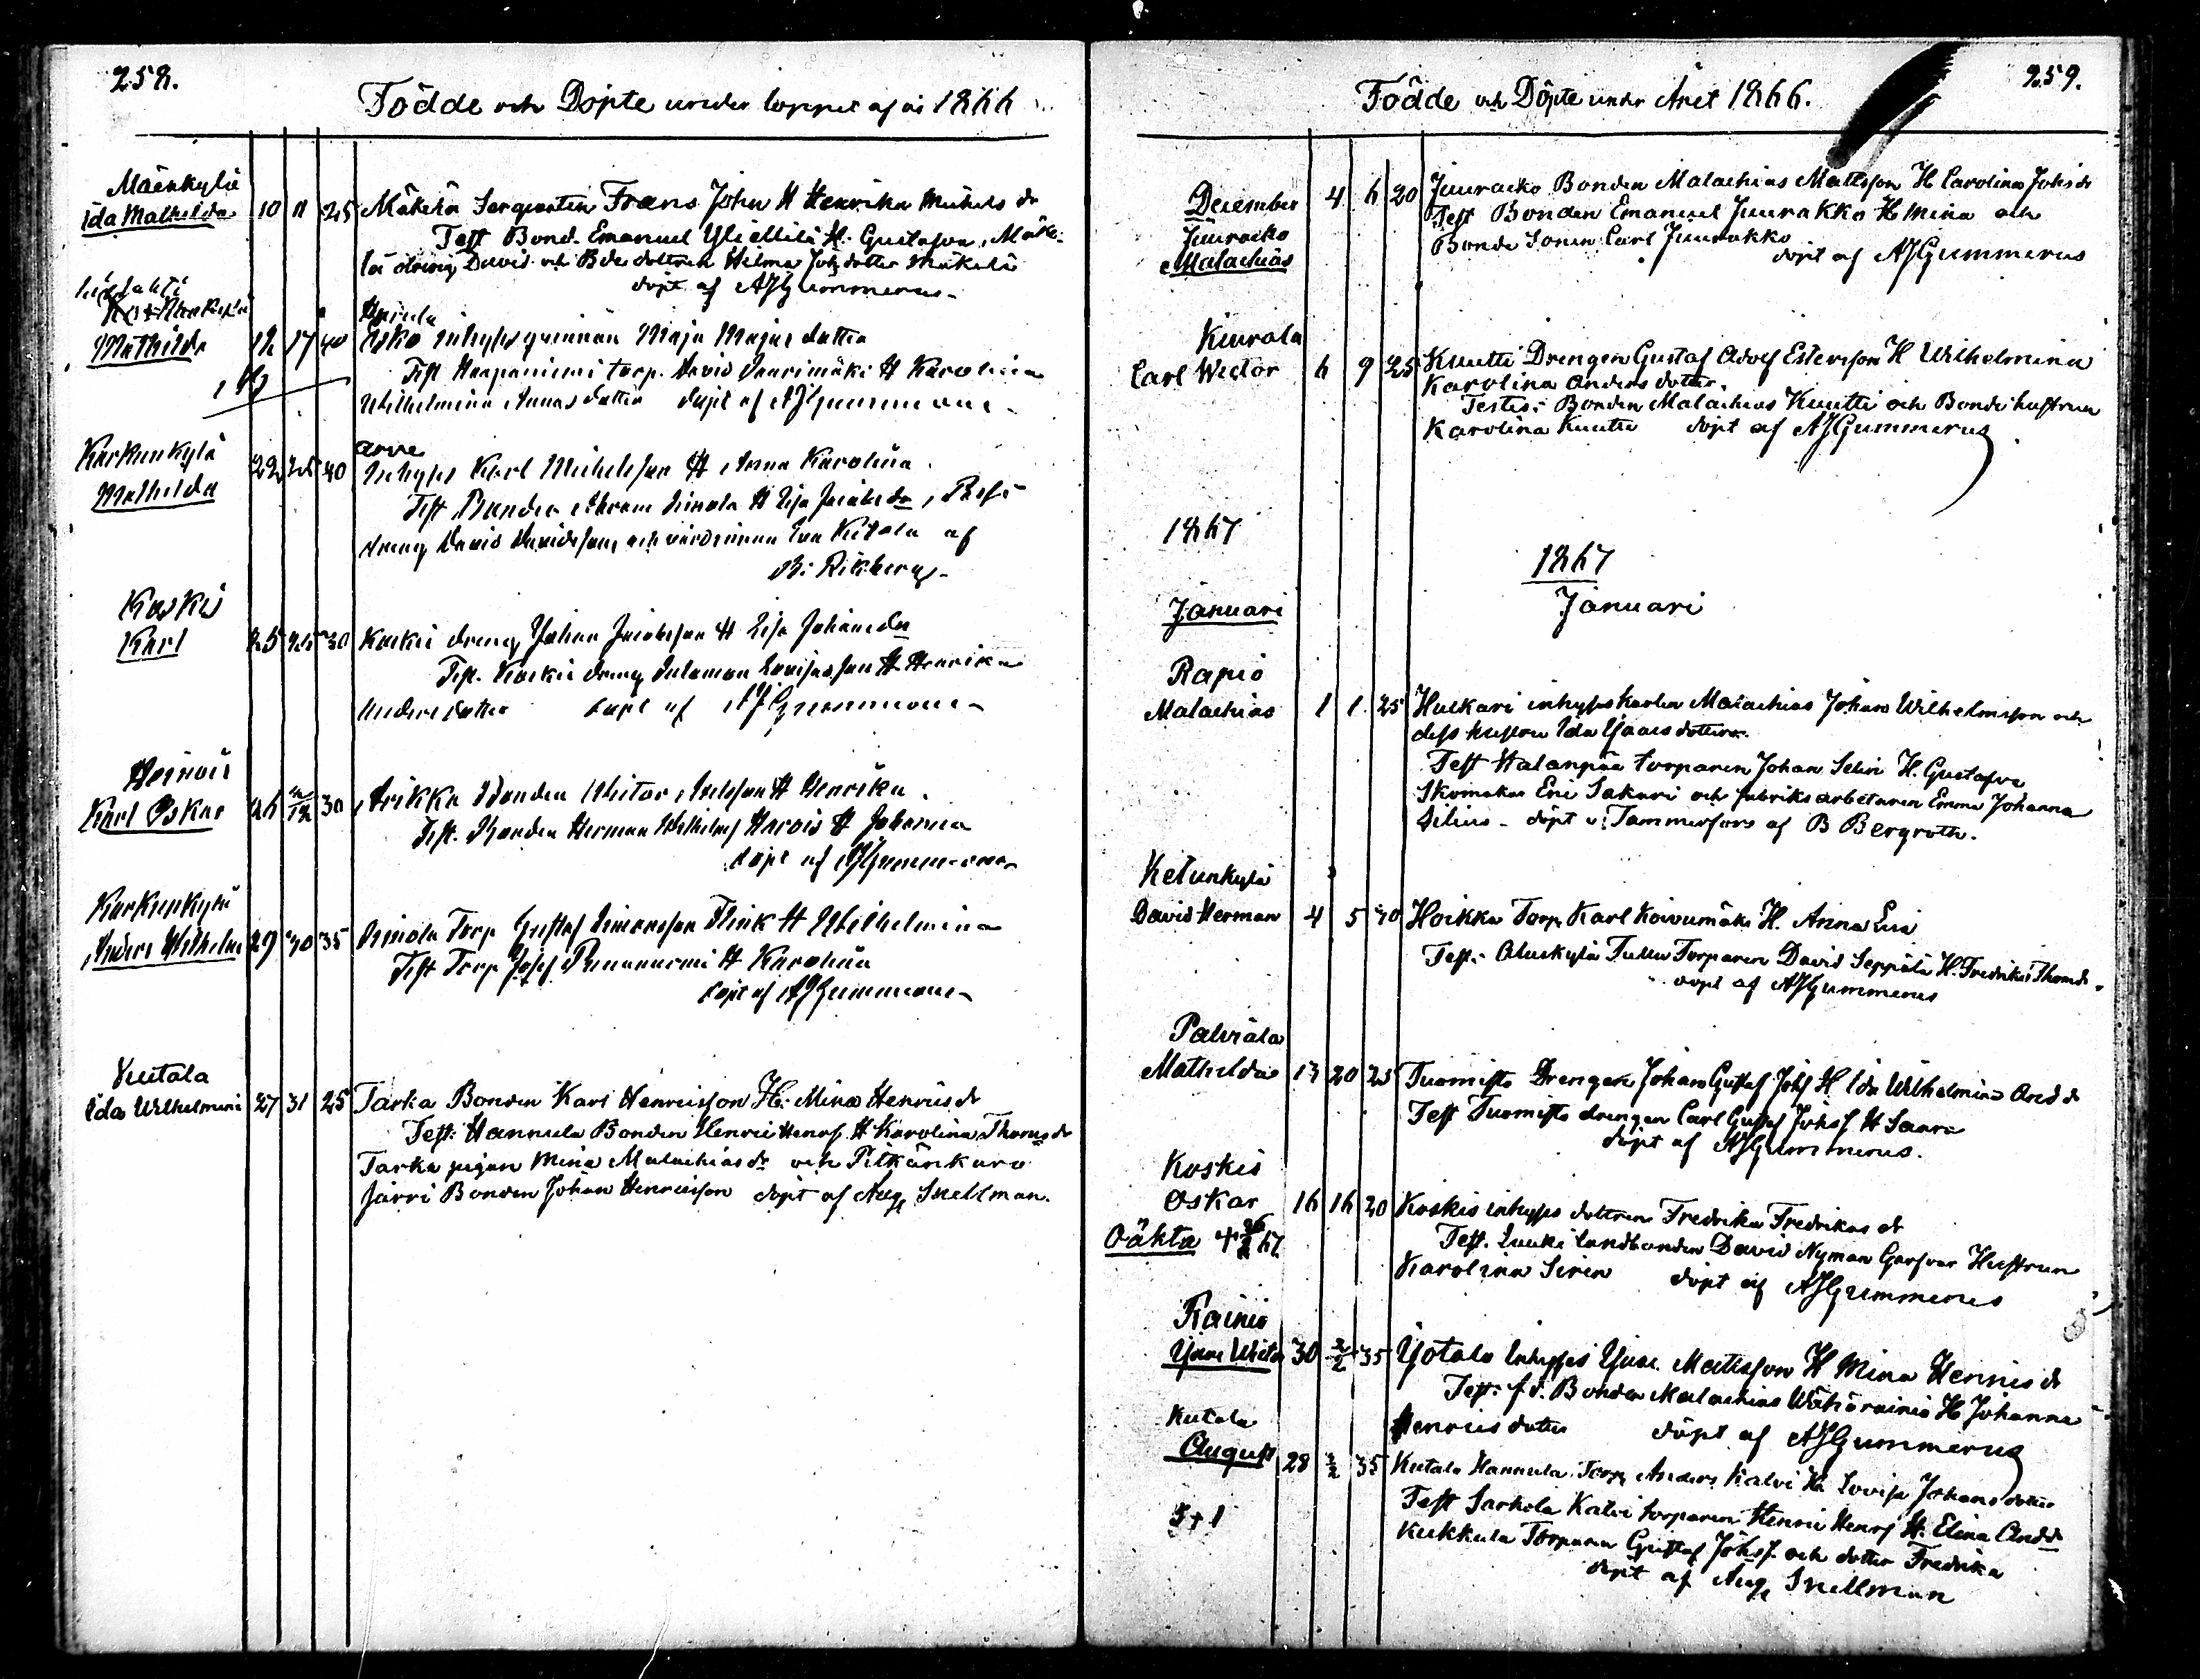 258.
Födde och Döpte under loppet af år 1866
Mäenkylä
Ida Mathilda 10 11 25 Mäkelä Sergeanten Frans John H Henrika Michels dr
Test Bond. Emanuel Yliellilä H. Gustafva, Mäke-
lä dreng David och Bde dottren Helma Joh dotter Mäkelä
döpt af AJGummerus
Mathilda 12 17 40 Esko inhyses qvinnan Maja Majas dotter
Test Haapaniemi torp. David Saarimäki H Karolina
Wilhelmina Annas dotter döpt af AJGummerus
Karkunkylä
Mathilda 22 25 40 Inhyses Karl Michelsson H Anna Karolina
Arve
Test Bonden Abram Simola H Lisa Jacobs dr,
dreng David Davidsson och värdinnan Eva Kutala af
B: Rikberg
Koskis
Karl 25 25 30 Koskis dreng Johan Jacobsson H Lisa Johans dr
Test. Koskis dreng Salomon H Henrika
Anders dotter döpt af AJGummerus
Heinois
Karl Oskar 26 2/12 30 Arikka Bonden Wictor H Henrika
Test. Bonden Herman Wilhelms H Johanna
döpt af AJGummerus
Karkunkylä
Anders Wilhelm 29 30 35 Simola Torp Gustaf Simonsson Flink H Wilhelmina
Test Torp Josef H Karolina
döpt af AJGummerus
Kutala
Ida Wilhelmina 27 31 25 Tarka Bonden Karl Henricsson H: Mina Henrics dr
Test: Hannula Bonden Henric Henrs H Karolina Thomas dr
Tarka pigan Mina Malachias dr och Pitkänkaro
Järvi Bonden Johan Henricsson döpt af Aug Snellman.
259.
Födde och Döpte under Året 1866.
December 4 6 20 Juuracko Bonden Malachias Mattsson H Carolina Johs dr
Juuracko Test Bonden Emanuel Juurakko H Mina och
Malachias Bonde Sonen Carl Juurakko
döpt af AJGummerus
Kiurala
Carl Wector 6 9 25 Kuutti Drengen Gustaf Adolf Estersson H Wilhelmina
Karolina Anders dotter.
Testes: Bonden Malachias Kuutti och Bonde hustrun
Karolina Kuutti döpt af AJGummerus
1867
1867
Januari
Januari
Rapio
Malachias 1 1 25 Huckari inhyses karlen Malachias Johan Wilhelmsson och
dess hustru Ida Isaacs dotter
Test Halanpää torparen Johan Selin H. Gustafva
Skomakar Eric Sakari och fabriks arbetaren Emma Johanna
Silius - döpt i Tammerfors af B Bergroth.
Ketunkylä
David Herman 4 5 40 Hoikka Torp Karl Koivumäki H. Anna Lisa
Test: Tulle Torparen David Seppälä H. Fredrika Thoms dr
döpt af AJGummerus
Palviala
Mathilda 13 20 25 Tuomisto Drengen Johan Gustaf Johs H Ida Wilhelmina And dr
Test Tuomisto drengen Carl Gustaf Johs H Saara
döpt af AJGummerus.
Koskis
Oskar 16 16 20 Koskis inhyses dottren Fredrika Fredrikas dr
Oäkta + 26/2 67 Test. Luuki landbonden David Nyman Garfvar Hustrun
Karolina Siren döpt af AJGummerus
Rainio
30 2/2 35 Yotalo Inhyses Mattsson H Mina Henrics dr
Test: f.d. Bonden Malachias Wähärainio H Johanna
Henrics dotter döpt af AJGummerus
Kutala
August 28 2/2 35 Kutala Hannula Torp Anders Kalvi H Lovisa Johans dotter
Test Sarkola Kalvi torparen Henric Henrs H. Elina And dr
5+1 Kukkula Torparen Gustaf Johs. och dotter Fredrika
döpt af Aug Snellman